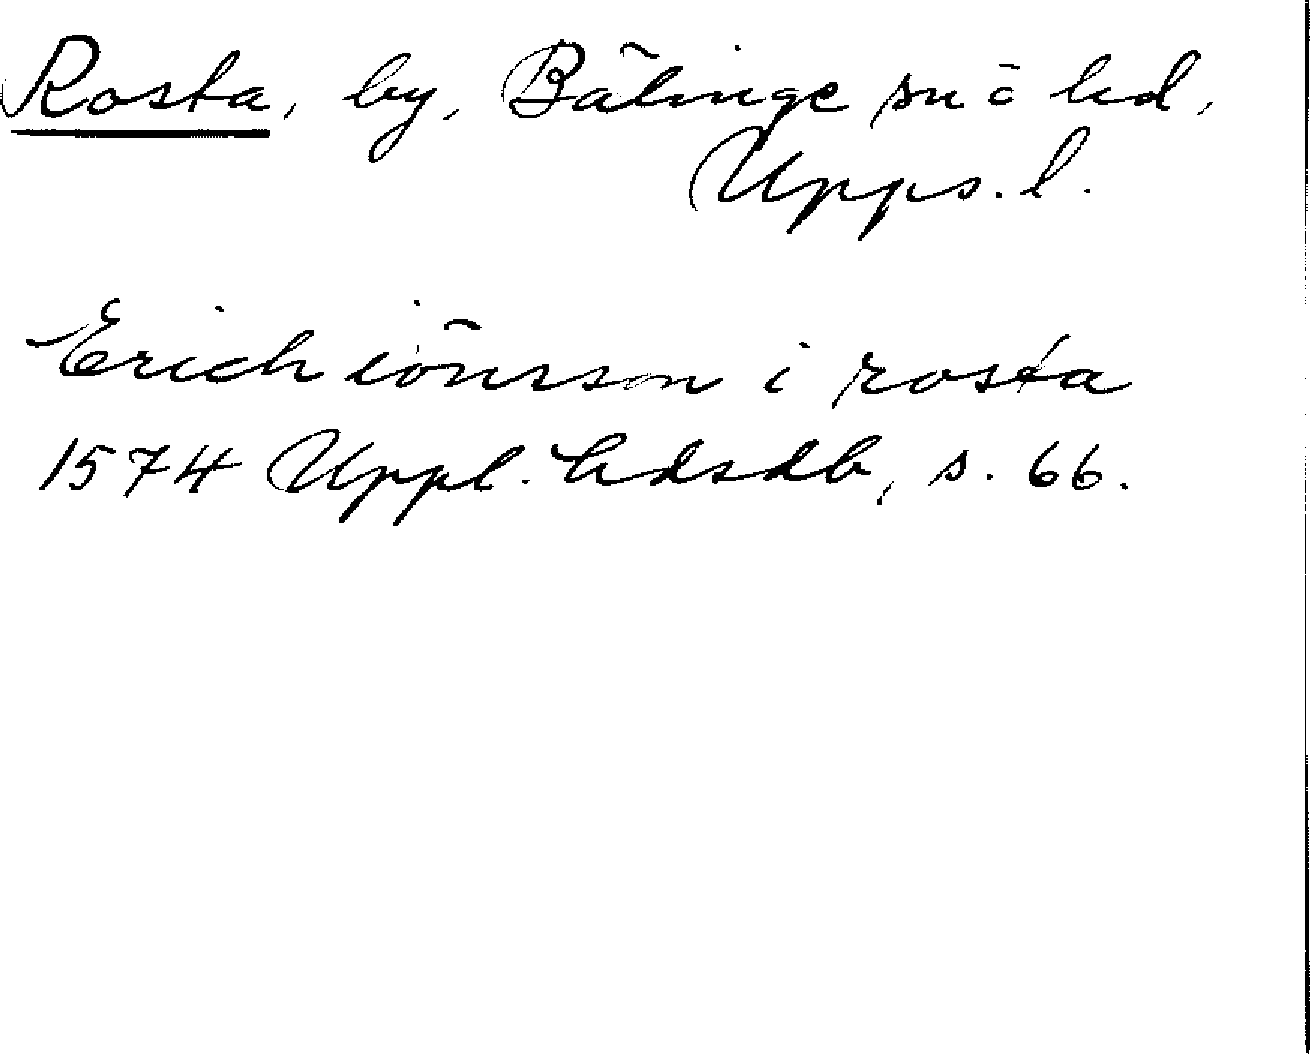 Rosta, by, Bälinge sn ö hd,
Upps. l.
Erich iönsson i rosta
1574 Uppl. hdsdb, s. 66.